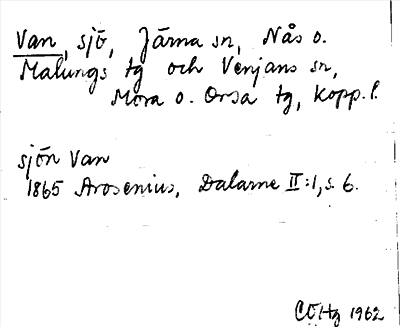 Van, sjö, Järna sn, Nås o.
Malungs tg och Venjans sn,
Mora o. Orsa tg, Kopp. l.
sjön Van
1865 Arosenius, Dalarne II:1, s. 6.
CEHg 1962